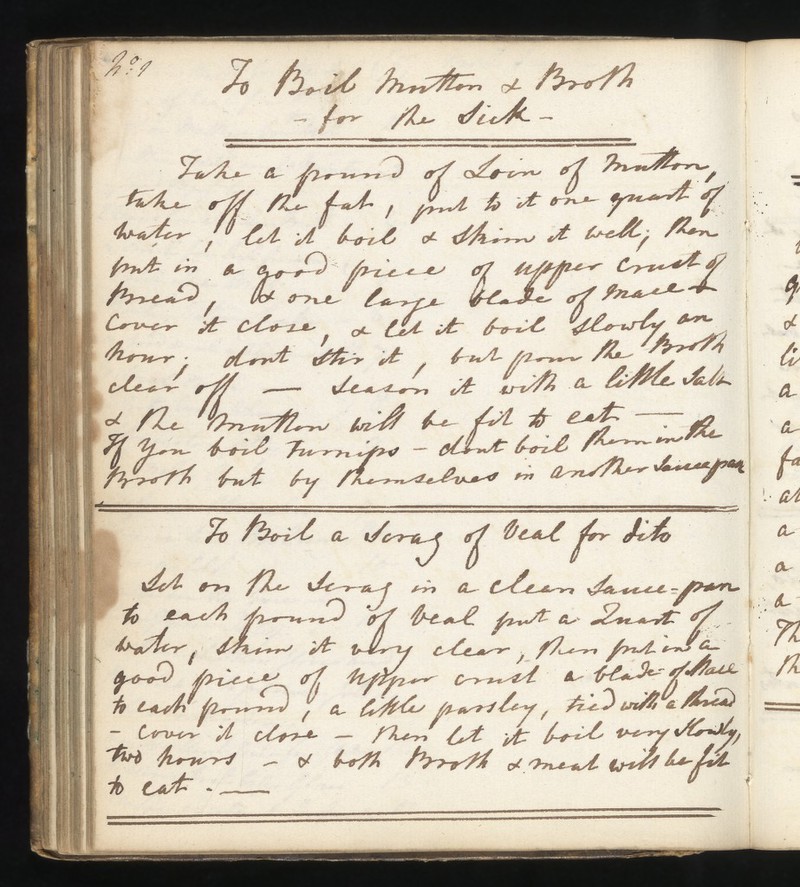 No: 1
To Boil Mutton & Broth
- for the Sick -
Take a pound of Loin of Mutton,
take off the fat, put to it one quart of
water, let it boil & skim it well; then
put in a good piece of upper crust of
Bread, & one large blade of Mace &
cover it close, & let it boil slowly an
hour; dont stir it, but pour the Broth
clear off — Season it with a little Salt
& the Mutton will be fit to eat —
If you boil Turnips - dont boil them in the
Broth but by themselves in another Saucepan
To Boil a Scrag of Veal for dito
Set on the Scrag in a clean Sauce=pan
to each pound of Veal put a Quart of
water, skim it very clear, then put in a
good piece of upper crust a blade of Mace
to each pound, a little parsley, tied with a thread
- cover it close - then let it boil very slowly,
two hours - & both Broth & meat will be fit
to eat . —
q
&
li
a
a
fa
at
a
a
a
Th
th